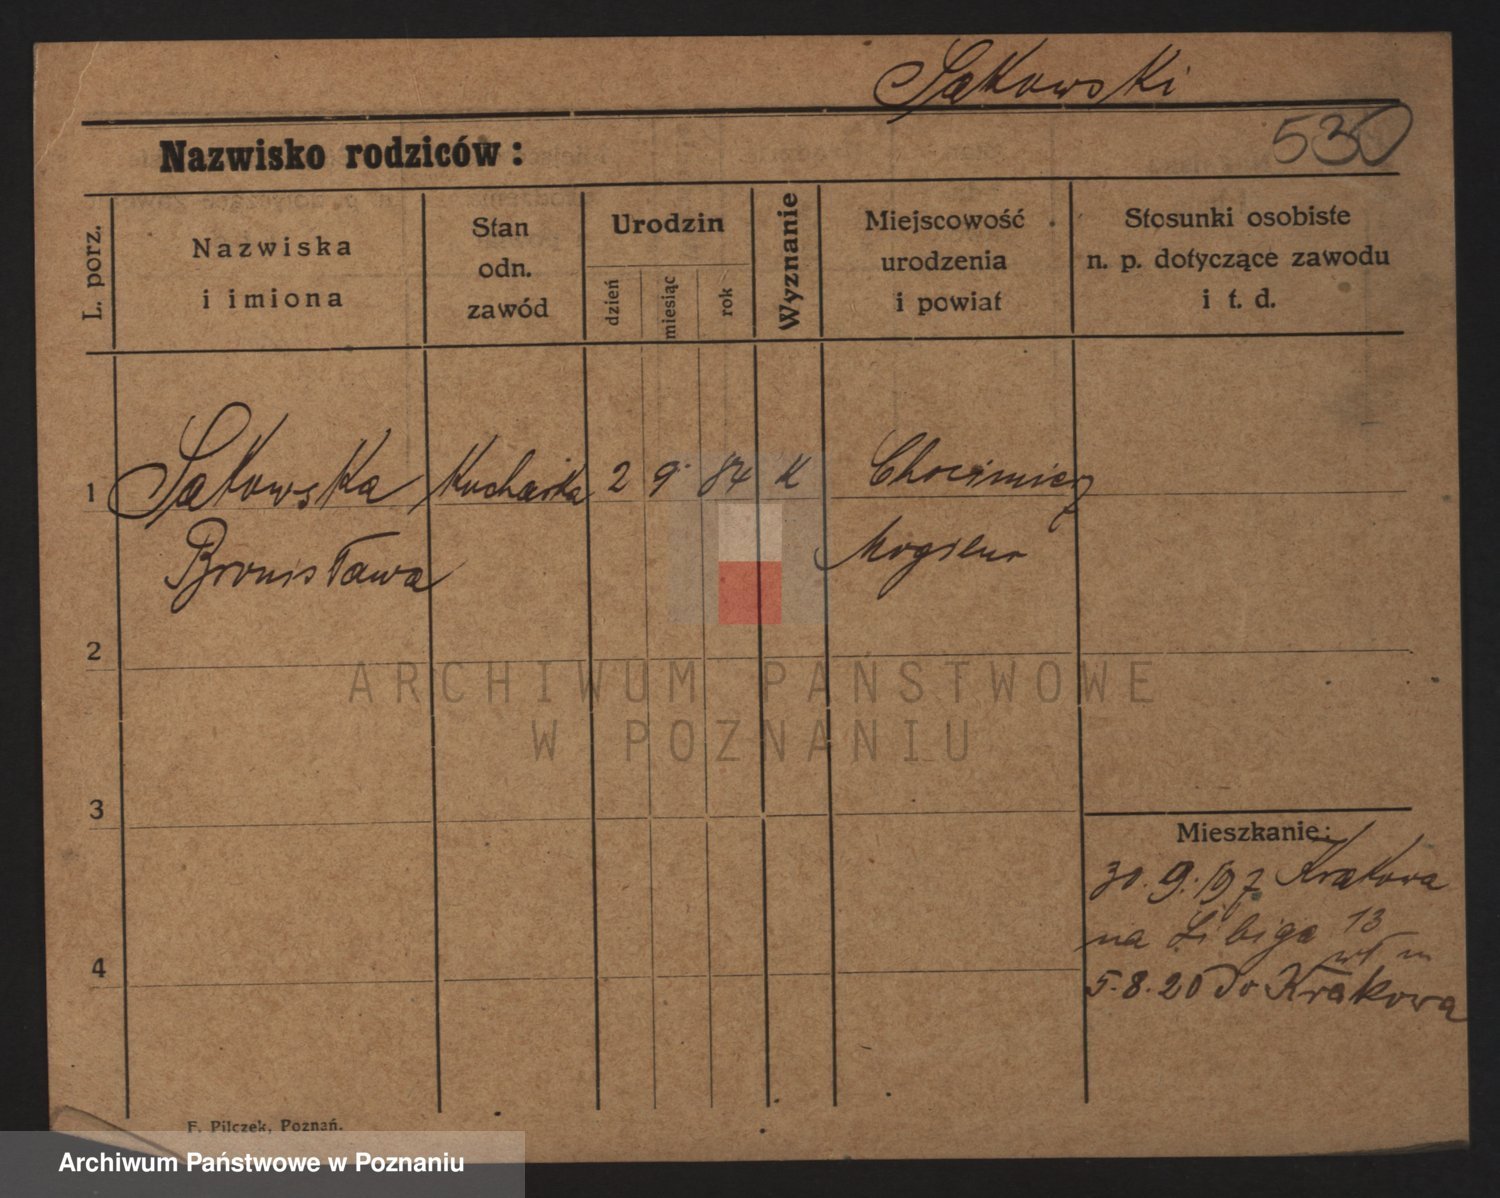 Sąkowski
530
Nazwisko rodziców:
L. porz.
Nazwiska
i imiona
Stan
odn.
zawód
Urodzin
dzień
miesiąc
rok
Wyznanie
Miejscowość
urodzenia
i powiat
Stosunki osobiste
n. p. dotyczące zawodu
i t. d.
1 Sąkowska Kucharka 2 9 84 K Chocimierz
Bronisława
2
ARCHIWUM PAŃSTWOWE
W POZNANIU
3
Mieszkanie:
30.9.197 Krakowa
na Libiga 13
4
5.8.20 do Krakowa
F. Pilczek, Poznań.
Archiwum Państwowe w Poznaniu